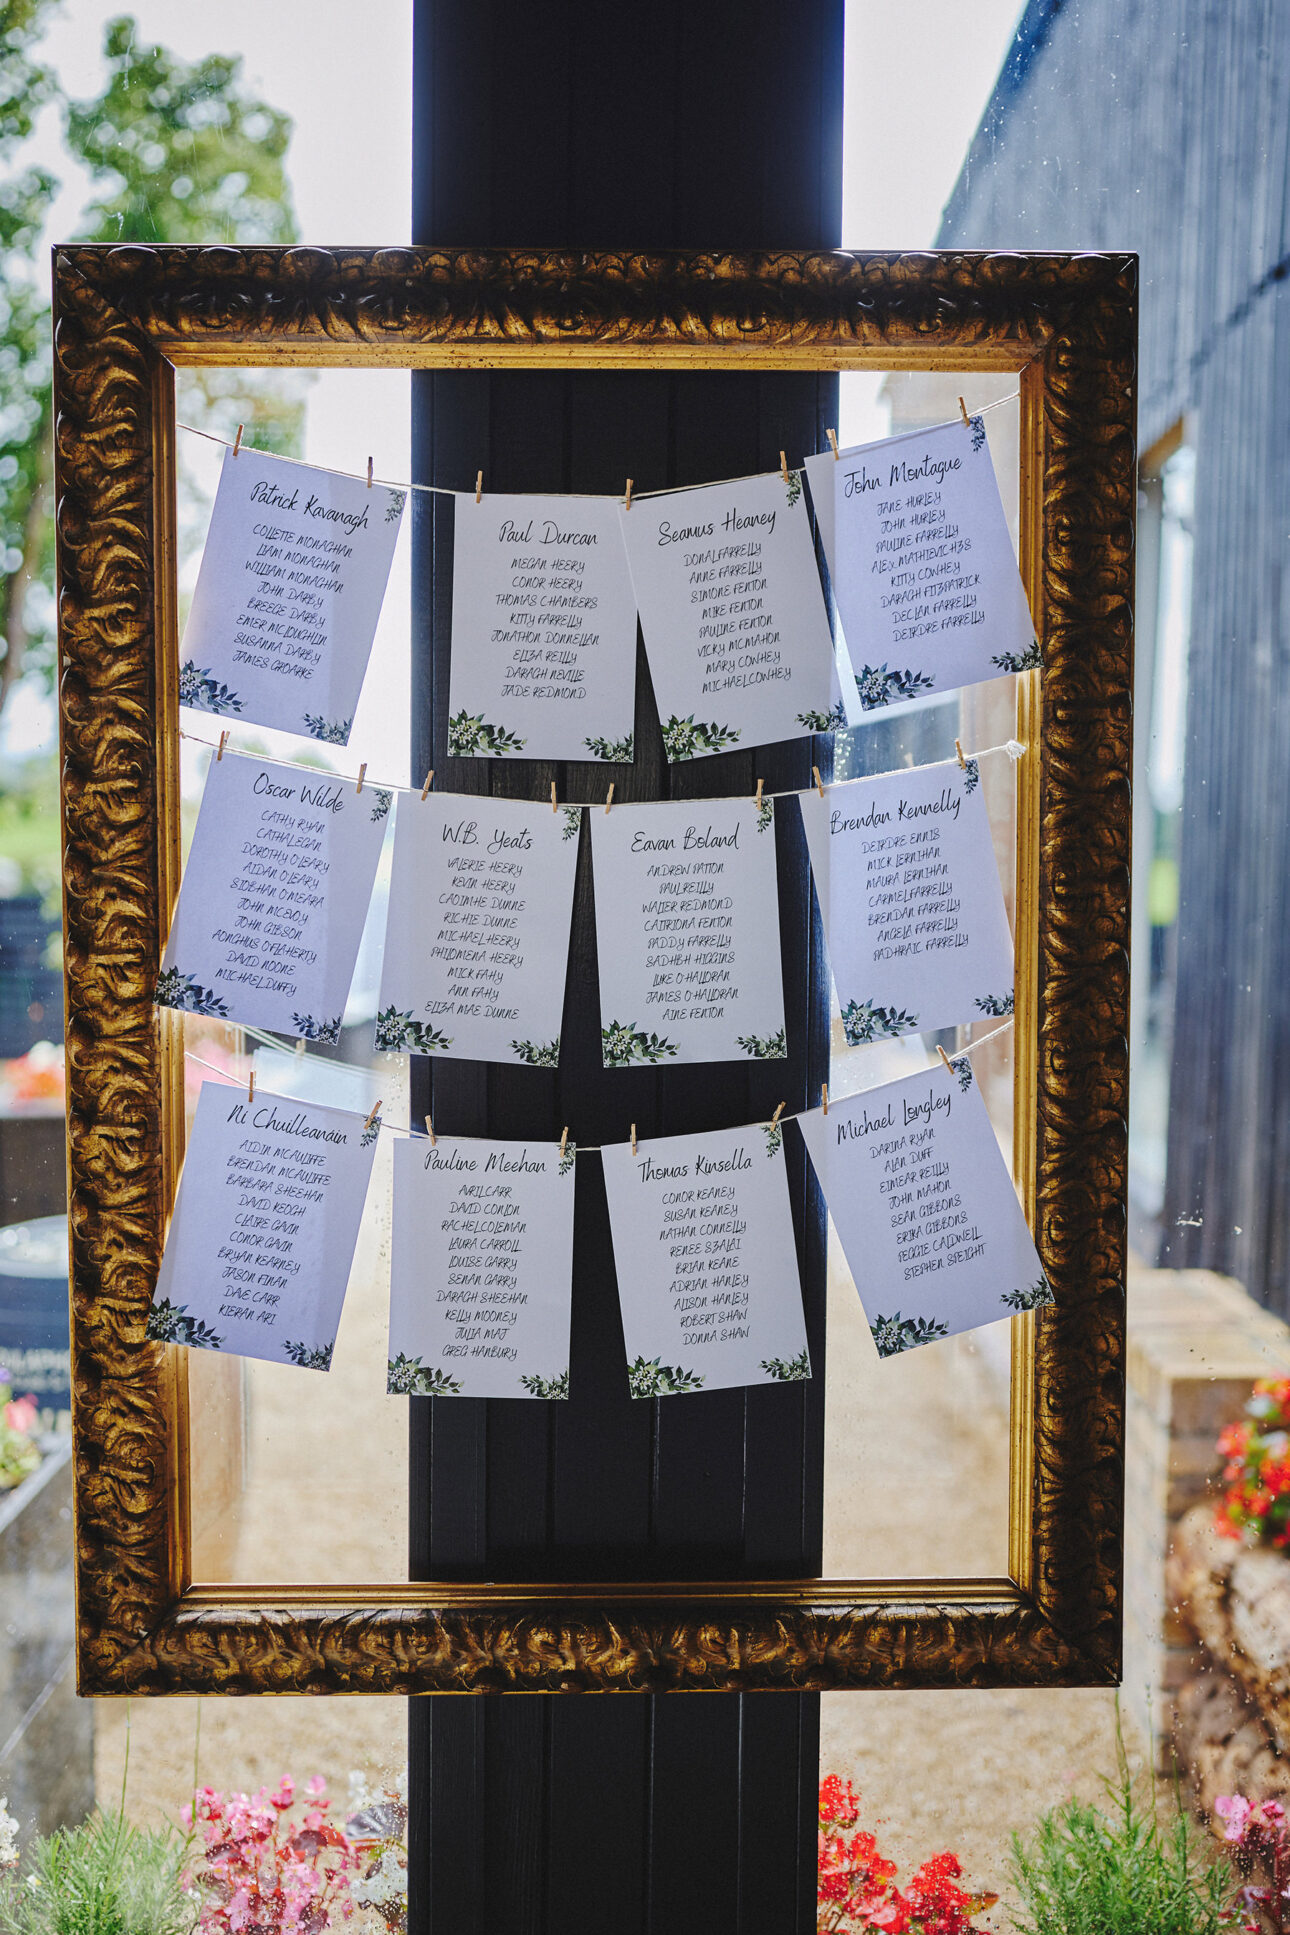 Patrick Kavanagh
COLLETTE MONAGHAN
LIAM MONAGHAN
WILLIAM MONAGHAN
JOHN DARBY
BREEGE DARBY
EMER MCLOUGHLIN
SUSANNA DARBY
JAMES GROARKE
Paul Durcan
MEGAN HEERY
CONOR HEERY
THOMAS CHAMBERS
KITTY FARRELLY
JONATHON DONNELLAN
ELIZA REILLY
DARAGH NEVILLE
JADE REDMOND
Seamus Heaney
DONAL FARRELLY
ANNE FARRELLY
SIMONE FENTON
MIKE FENTON
PAULINE FENTON
VICKY MCMAHON
MARY COWHEY
MICHAEL COWHEY
John Montague
JANE HURLEY
JOHN HURLEY
PAULINE FARRELLY
ALEX MATHIEVICHZS
KITTY COWHEY
DARAGH FITZPATRICK
DECLAN FARRELLY
DEIRDRE FARRELLY
Oscar Wilde
CATHY RYAN
CATHAL EGAN
DOROTHY O'LEARY
AIDAN O'LEARY
SIOBHAN O'MEARA
JOHN MCEVOY
JOHN GIBSON
AONGHUS O'FLAHERTY
DAVID NOONE
MICHAEL DUFFY
W.B. Yeats
VALERIE HEERY
KEVIN HEERY
CAOIMHE DUNNE
RICHIE DUNNE
MICHAEL HEERY
PHILOMENA HEERY
MICK FAHY
ANN FAHY
ELIZA MAE DUNNE
Eavan Boland
ANDREW PATTON
PAUL REILLY
WALTER REDMOND
CAITRIONA FENTON
PADDY FARRELLY
SADHBH HIGGINS
LUKE O'HALLORAN
JAMES O'HALLORAN
AINE FENTON
Brendan Kennelly
DEIRDRE ENNIS
MICK LERNIHAN
MAURA LERNIHAN
CARMEL FARRELLY
BRENDAN FARRELLY
ANGELA FARRELLY
PADHRAIC FARRELLY
Ní Chuilleanáin
AIDIN MCAULIFFE
BRENDAN MCAULIFFE
BARBARA SHEEHAN
DAVID KEOGH
CLAIRE GAVIN
CONOR GAVIN
BRYAN KEARNEY
JASON FINAN
DAVE CARR
KIERAN ARI
Pauline Meehan
AVRIL CARR
DAVID CONLON
RACHEL COLEMAN
LAURA CARROLL
LOUISE GARRY
SENAN GARRY
DARAGH SHEEHAN
KELLY MOONEY
JULIA MAJ
GREG HANBURY
Thomas Kinsella
CONOR KEANEY
SUSAN KEANEY
NATHAN CONNELLY
RENEE SZALAI
BRIAN KEANE
ADRIAN HANLEY
ALISON HANLEY
ROBERT SHAW
DONNA SHAW
Michael Longley
DARINA RYAN
ALAN DUFF
EIMEAR REILLY
JOHN MAHON
SEAN GIBBONS
ERIKA GIBBONS
PEGGIE CALDWELL
STEPHEN SPEIGHT